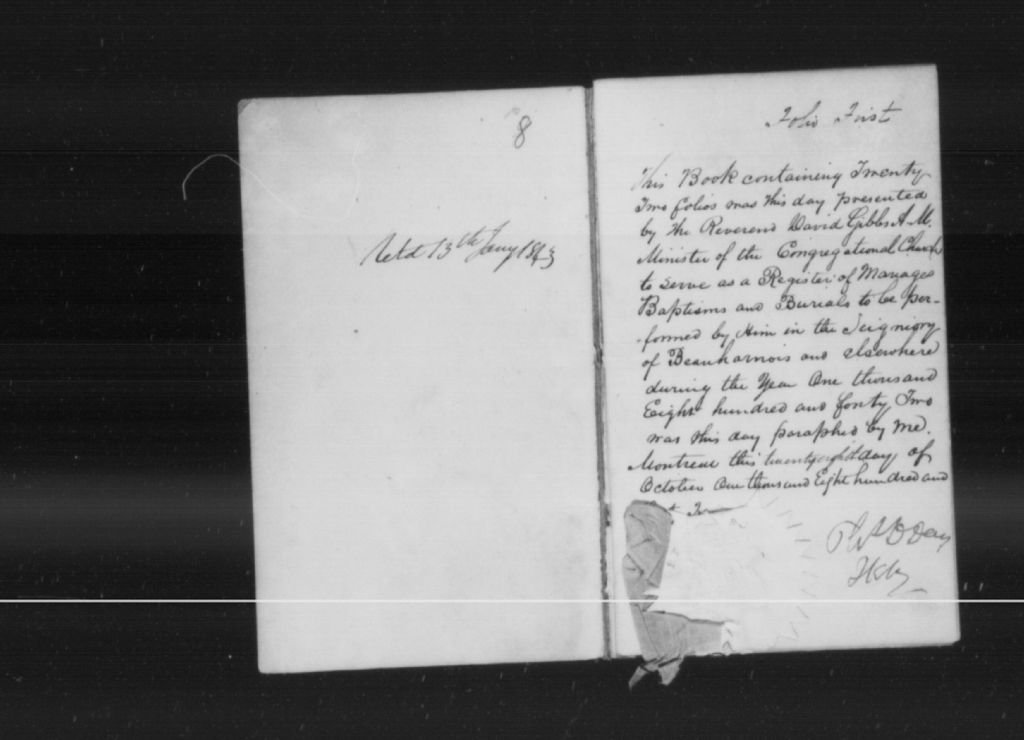 8
Retd 13th Jany 1843
Folio First
This Book containing Twenty
Two folios was this day presented
by the Reverend David Gibbs A. M.
Minister of the Congregational Church
to serve as a Register of Mariages
Baptisms and Burials to be per-
-formed by Him in the Seignigory
of Beauharnois and elsewhere
during the Year One thousand
Eight hundred and forty Two
was this day paraphed by me.
Montreal this twenty eight day of
October One thousand Eight hundred and